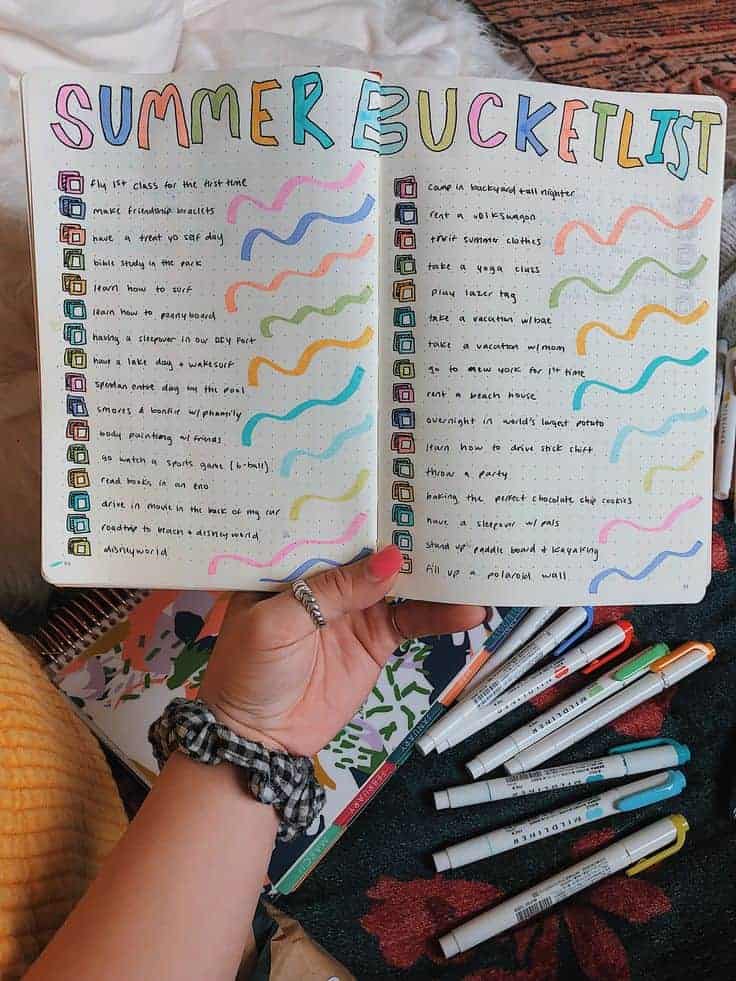 SUMMER BUCKET LIST
fly 1st class for the first time
make friendship braclets
have a treat yo self day
bible study in the park
learn how to surf
learn how to penny board
having a sleepover in our DIY fort
have a lake day + wakesurf
spend an entire day by the pool
smores & bonfire w/ phamily
body painting w/ friends
go watch a sports game (b-ball)
read books in an eno
drive in movie in the back of my car
roadtrip to beach + disneyworld
disneyworld
camp in backyard + all nighter
rent a volkswagon
thrift summer clothes
take a yoga class
play lazer tag
take a vacation w/ bae
take a vacation w/ mom
go to new york for 1st time
rent a beach house
overnight in world's largest potato
learn how to drive stick shift
throw a party
baking the perfect chocolate chip cookies
have a sleepover w/ pals
stand up paddle board + kayaking
fill up a polaroid wall
JANUARY
FEBRUARY
MARCH
MILDLINER
MILDLINER
MILDLINER